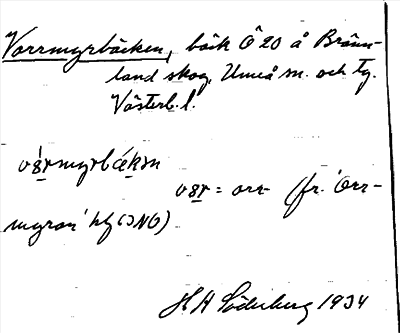 Vorrmyrbäcken, bäck Ö 20 å Bränn-
land skog, Umeå sn. och tg.
Västerb. l.
vȯrmyrbȧkɘn
vȯr = orr (fr. Orr-
myran
H H Söderberg 1934